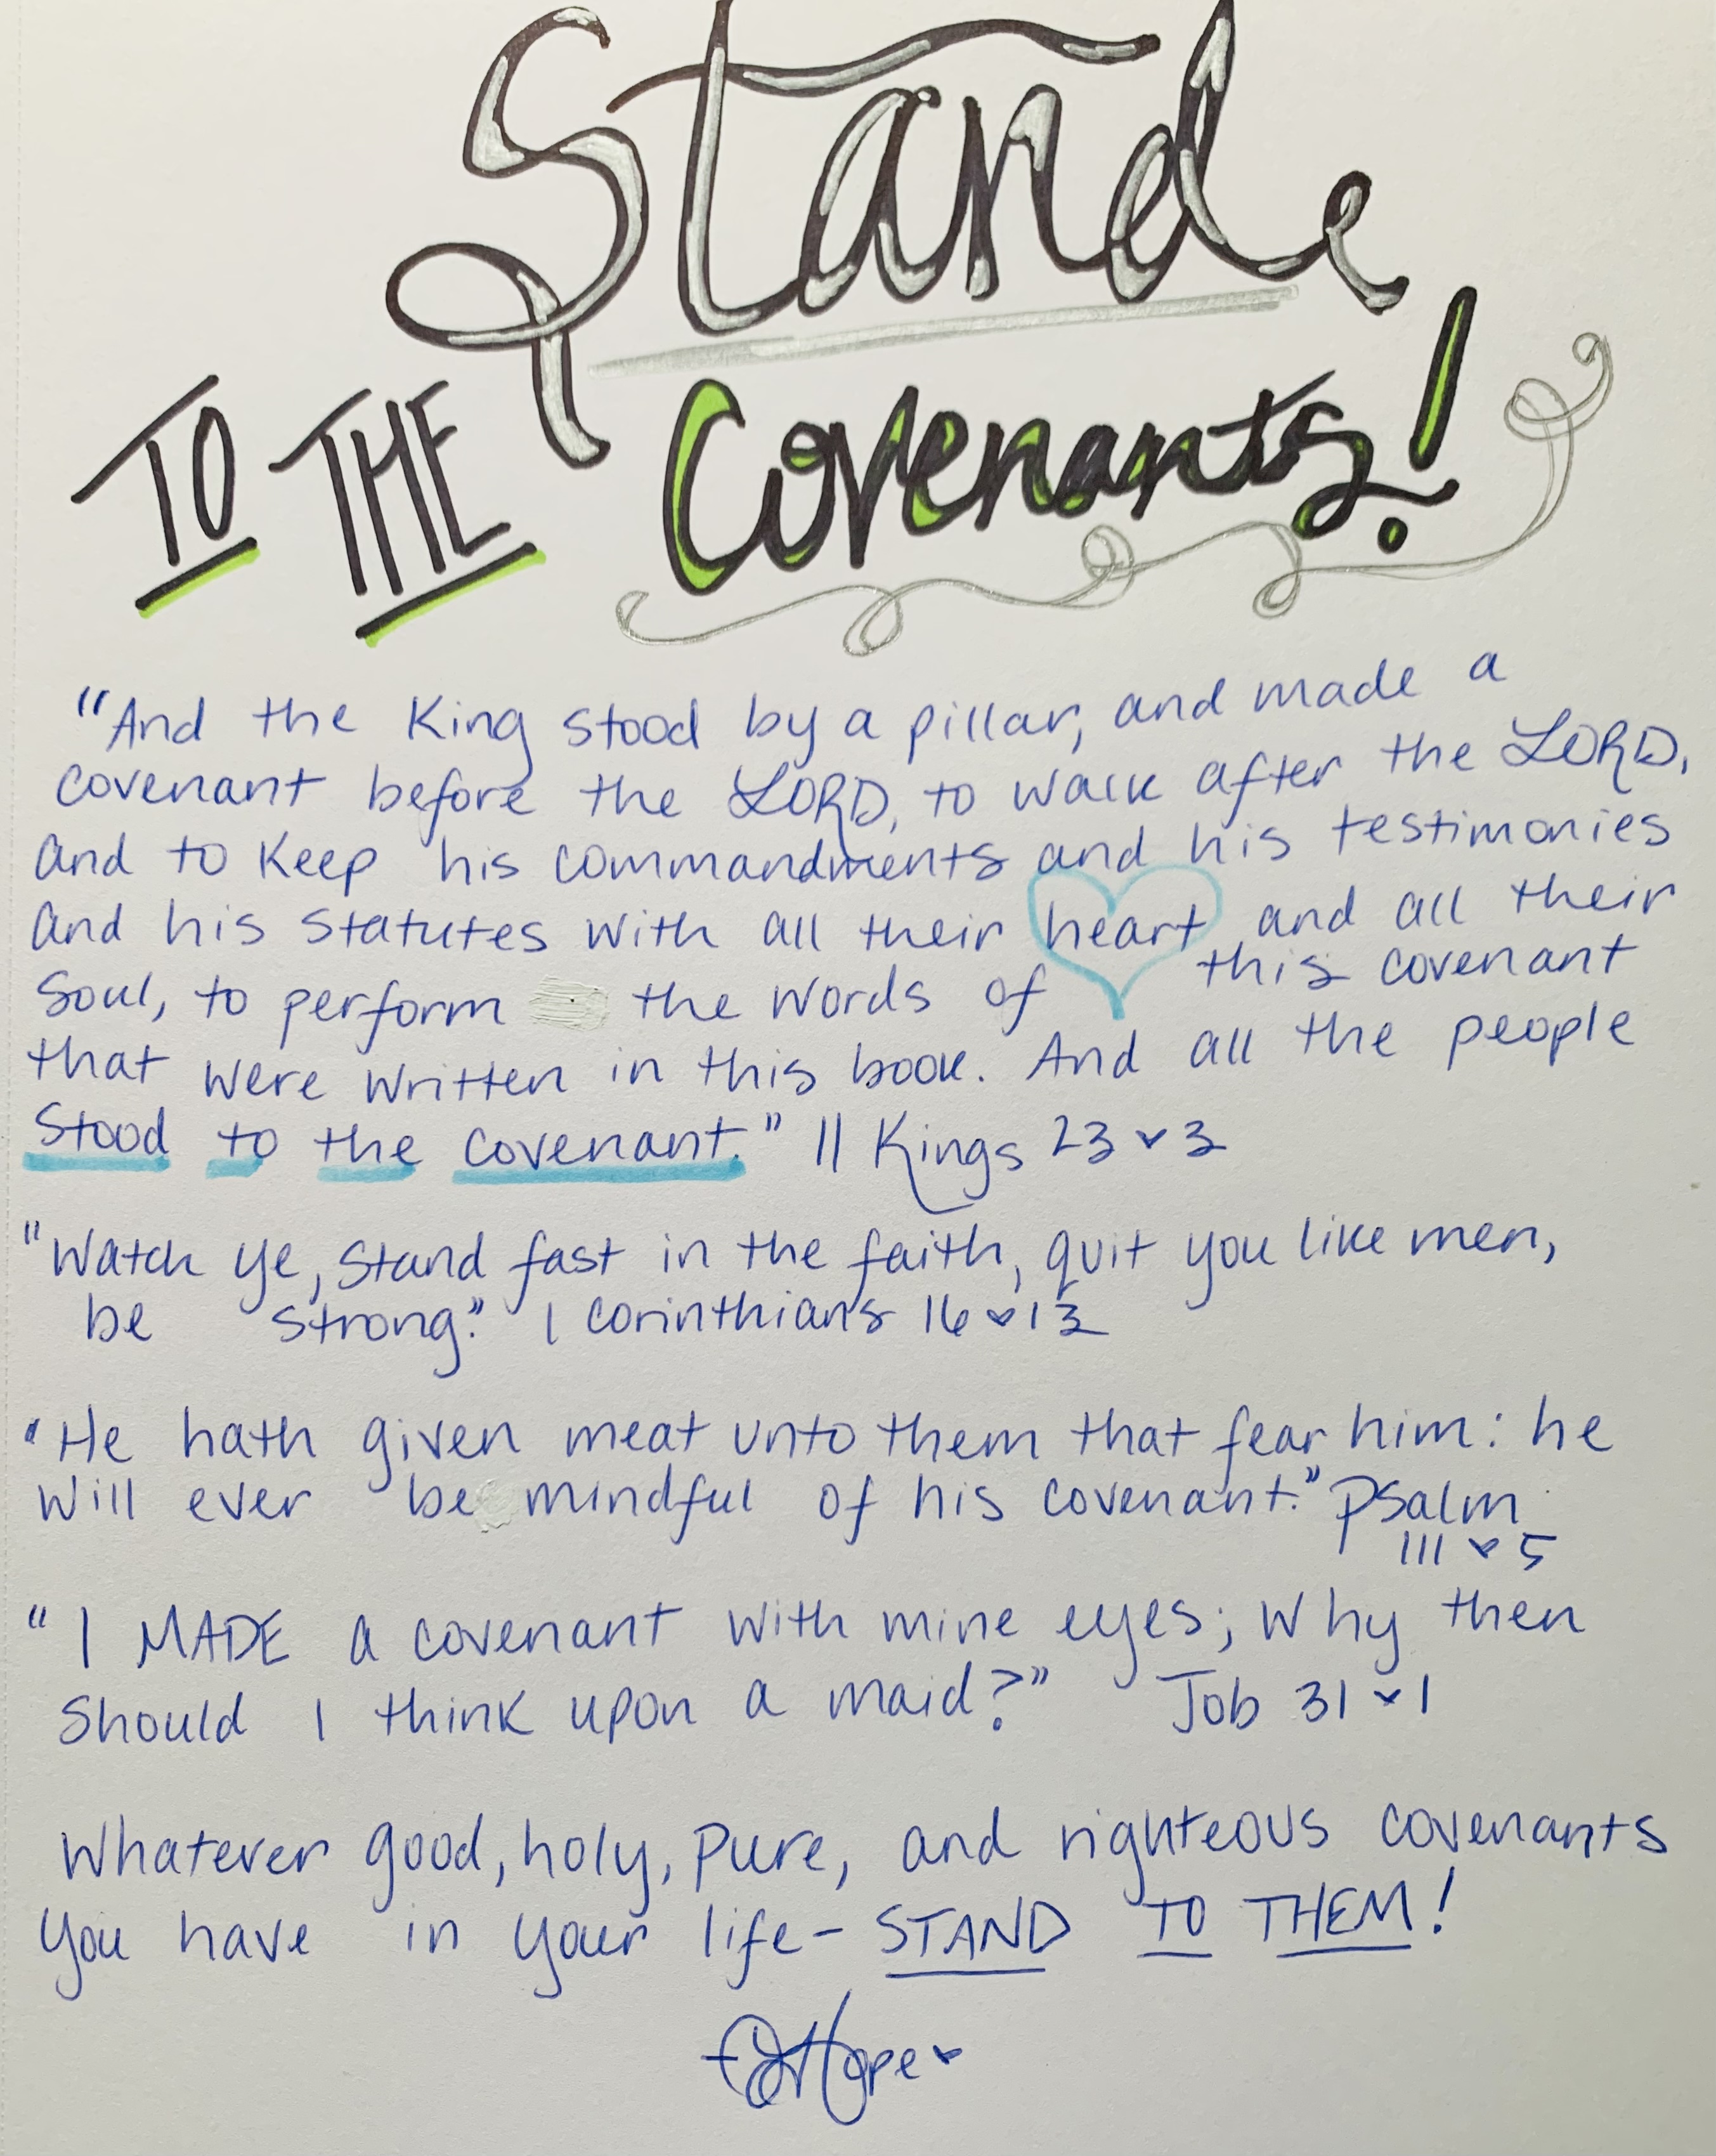 Stand
TO THE Covenants!
"And the King stood by a pillar, and made a
covenant before the LORD, to walk after the LORD,
and to keep his commandments and his testimonies
and his statutes with all their heart and all their
soul, to perform the words of this covenant
that were written in this book. And all the people
stood to the covenant." II Kings 23 ♥ 3
"Watch ye, stand fast in the faith, quit you like men,
be strong." 1 Corinthians 16 ♥ 13
"He hath given meat unto them that fear him: he
will ever be mindful of his covenant." Psalm
111 ♥ 5
"I MADE a covenant with mine eyes; why then
should I think upon a maid?" Job 31 ♥ 1
Whatever good, holy, pure, and righteous covenants
you have in your life - STAND TO THEM!
Hope ♥